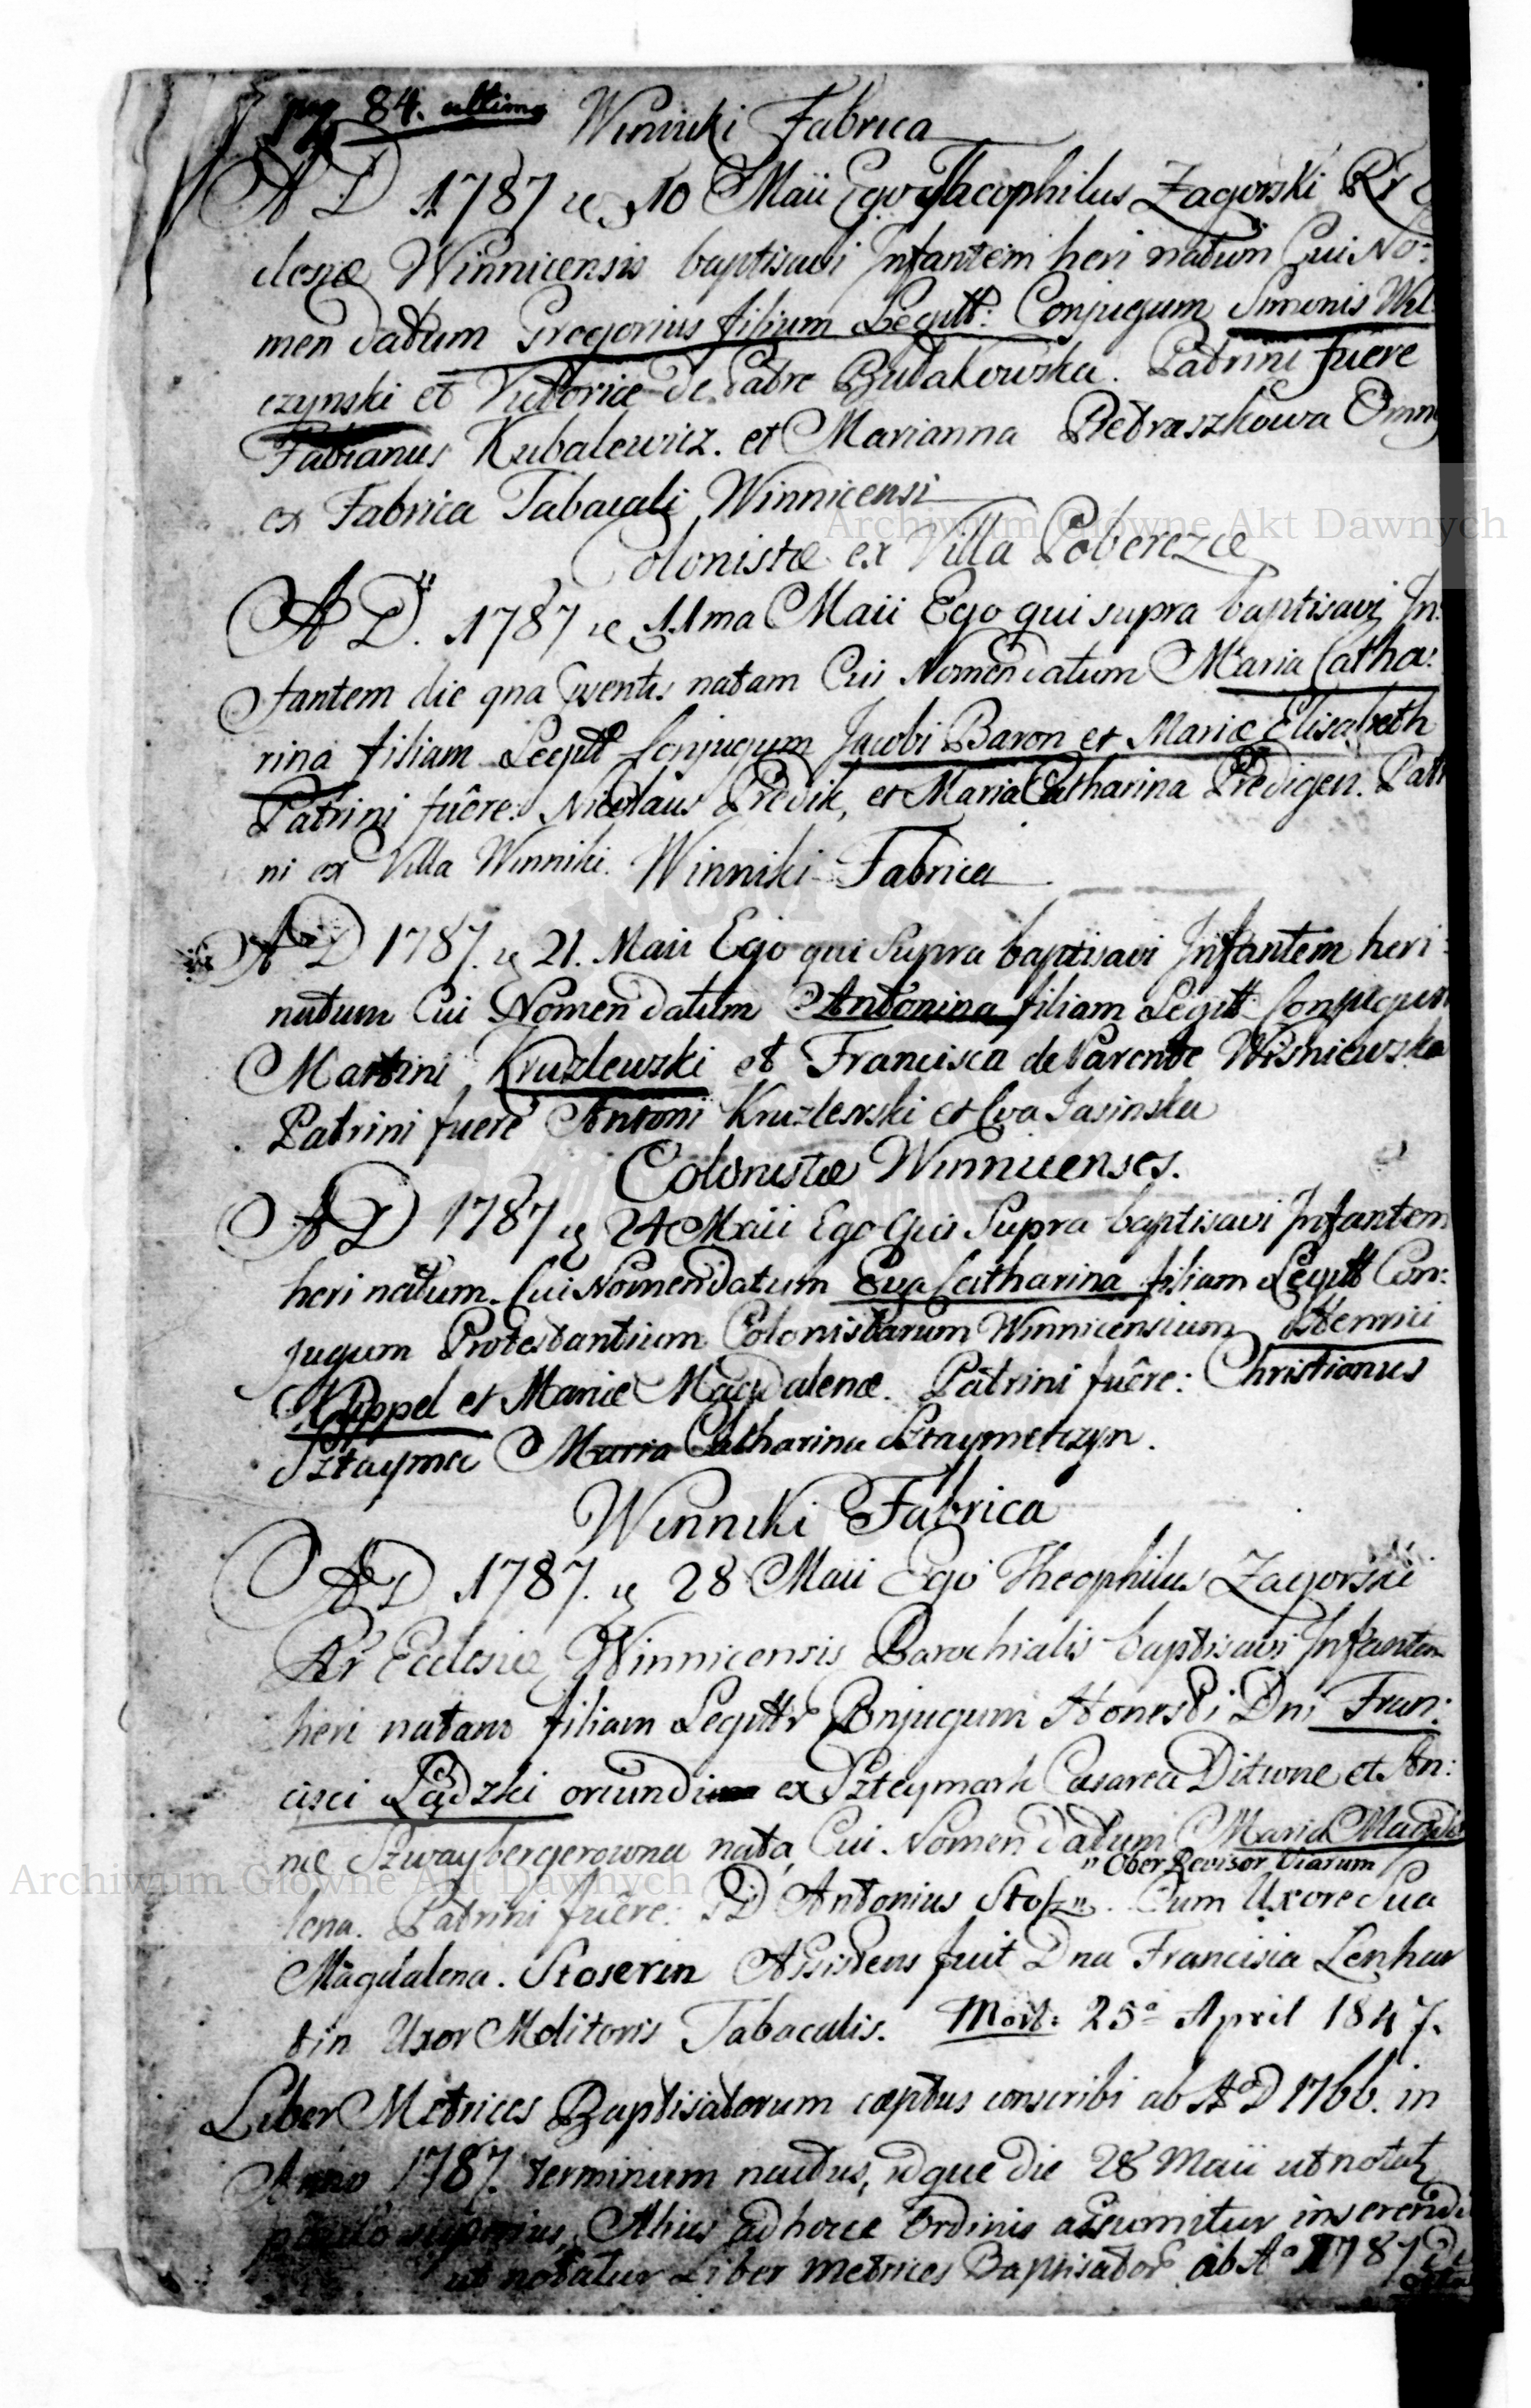 pag 84. ultima
Winniki Fabrica
A D 1787 10 Maii Ego Theophilus Zagorski Rr
clesiæ Winnicensis baptisavi Infantem heri natum Cui No:
men datum Gregorius filium Legitt: Conjugum Simonis Wil
czynski et Victoriæ de Patre Bulakowska. Patrini fuere
Fabianus Kubalewicz. et Marianna Pietraszkowa Omn
ex Fabrica Tabacali Winnicensi
Colonistæ ex Villa Poberezce
A D. 1787 11ma Maii Ego qui supra baptisavi In:
fantem die natam Cui Nomen datum Maria Catha:
rina filiam Legitt Conjugum Jacobi Baron et Mariæ Elisabeth
Patrini fuêre: Nicolaus Predik, et Maria Catharina Predigen. Patri
ni ex Villa Winniki. Winniki Fabrica
A D 1787. 21. Maii Ego qui supra baptisavi Infantem heri
natum Cui Nomen datum Antonina filiam Legitt Conjugum
Martini Kruzlewski et Francisca de Parente Wisniewska
Patrini fuere Antoni Kruzlewski et Eva Jasinska
Colonistæ Winnicenses.
A D 1787 24 Maii Ego Qui Supra baptisavi Infantem
heri natum. Cui Nomen datum Eva Catharina filiam Legitt Con:
jugum Protestantium Colonistarum Winnicensium Henrici
Koppel et Mariæ Magdalenæ. Patrini fuêre: Christianus
Sztayme Maria Catharina Sztaymetzyn.
Winniki Fabrica
A D 1787. 28 Maii Ego Theophilus Zagorski
Rr Ecclesiæ Winnicensis Parochialis baptisavi Infantem
heri natam filiam Legitt Conjugum Honesti Dni Fran:
cisci Lądzki oriundi ex Szteymark Cæsarea Ditione et An:
næ Szwaybergerowna nata, Cui Nomen datum Maria Magda
" Ober Revisor Viarum
lena. Patrini fuêre: D Antonius Stosz ". Cum Uxore Sua
Magdalena. Stoserin Assistens fuit Dna Francisca Lenhar
tin Uxor Molitoris Tabacalis. Mort: 25ª April 1847.
Liber Metrices Baptisatorum cæptus conscribi ab Aº D 1766. in
Anno 1787. terminum nactus, idque die 28 Maii ut notat
paulo superius, Alius ad hocce Ordinis assumitur inserendi
ut notatur Liber Metrices Baptisator ab Aº 1787